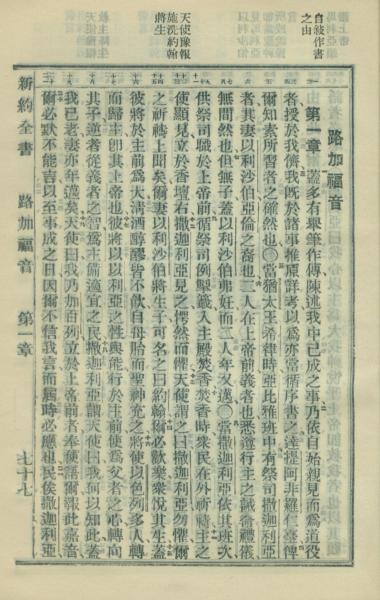 自敘作書之由
天使豫報施洗約翰將生
路加福音
第一章 蓋多有舉筆作傳陳述我中已成之事乃依自始親見而爲道役
者授於我儕我既於諸事推原詳考以爲亦當循序書之達提阿非羅仁臺俾
爾知素所習者之確然也〇當猶太王希律時亞比雅班中有祭司撒迦利亞
者其妻以利沙伯亞倫之裔也二人在上帝前義者也悉遵行主之誡命禮儀
無間然也但無子蓋以利沙伯弗妊而二人年又邁〇當撒迦利亞依其班次
供祭司職於上帝前循祭司例掣籤入主殿焚香焚香時衆民在外祈禱主之
使顯見立於香壇右撒迦利亞見之愕然而懼天使謂之曰撒迦利亞勿懼爾
之祈禱上聞矣爾妻以利沙伯將生子可名之曰約翰爾必歡樂衆悅其生蓋
彼將於主前爲大清酒醇醪皆不飲自母胎而聖神充之將使以色列多人轉
而歸主卽其上帝也彼將以以利亞之性與能行於主前使爲父者之心轉向
其子逆者從義者之智爲主備適宜之民撒迦利亞謂天使曰我何以知此蓋
我已老妻亦年邁矣天使曰我乃加百列立於上帝前者奉使語爾報此嘉音
爾必默不能言以至事成之日因爾不信我言而屆時必應也民俟撒迦利亞
新約全書 路加福音 第一章 七十七